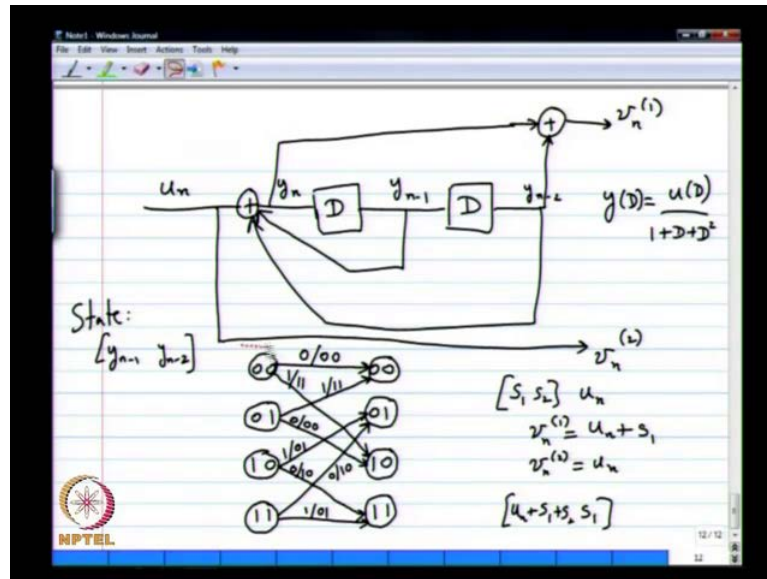 Note1 - Windows Journal
File Edit View Insert Actions Tools Help
v_n^(1)
u_n + y_n D y_n-1 D y_n-2 +
y(D) = u(D) / 1+D+D²
State:
[y_n-1 y_n-2]
v_n^(2)
00 0/00 00
1/11 1/11
01 0/00 01
1/01
10 0/10 0/10 10
11 1/01 11
[S₁ S₂] u_n
v_n^(1) = u_n + S₁
v_n^(2) = u_n
[u_n+S₁+S₂ S₁]
NPTEL
12 / 12
12